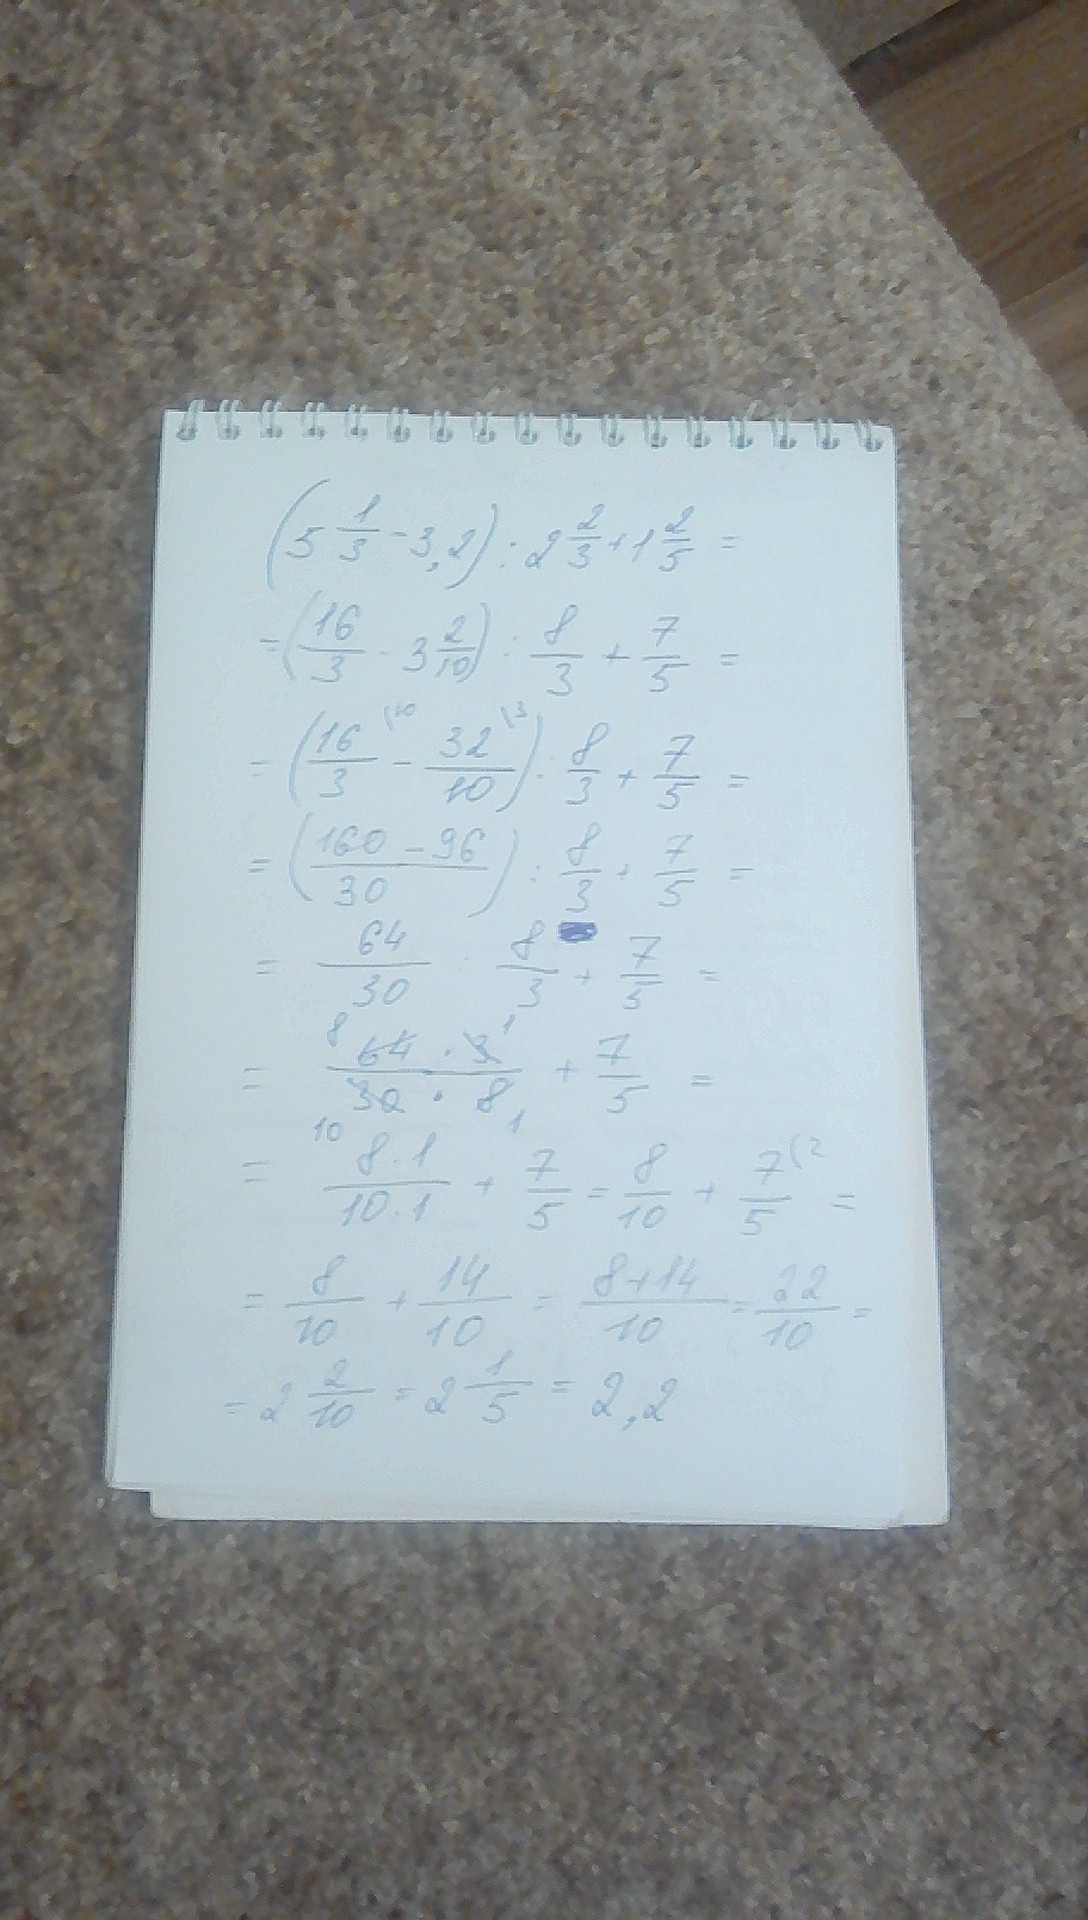 (5 1/3 - 3,2) : 2 2/3 + 1 2/5 =
= (16/3 - 3 2/10) : 8/3 + 7/5 =
= (16/3 \10 - 32/10 \3) : 8/3 + 7/5 =
= (160 - 96 / 30) : 8/3 + 7/5 =
= 64/30 : 8/3 + 7/5 =
= 8 64 · 3 1 / 10 30 · 8 1 + 7/5 =
= 8 · 1 / 10 · 1 + 7/5 = 8/10 + 7/5 \2 =
= 8/10 + 14/10 = 8+14 / 10 = 22/10 =
= 2 2/10 = 2 1/5 = 2,2